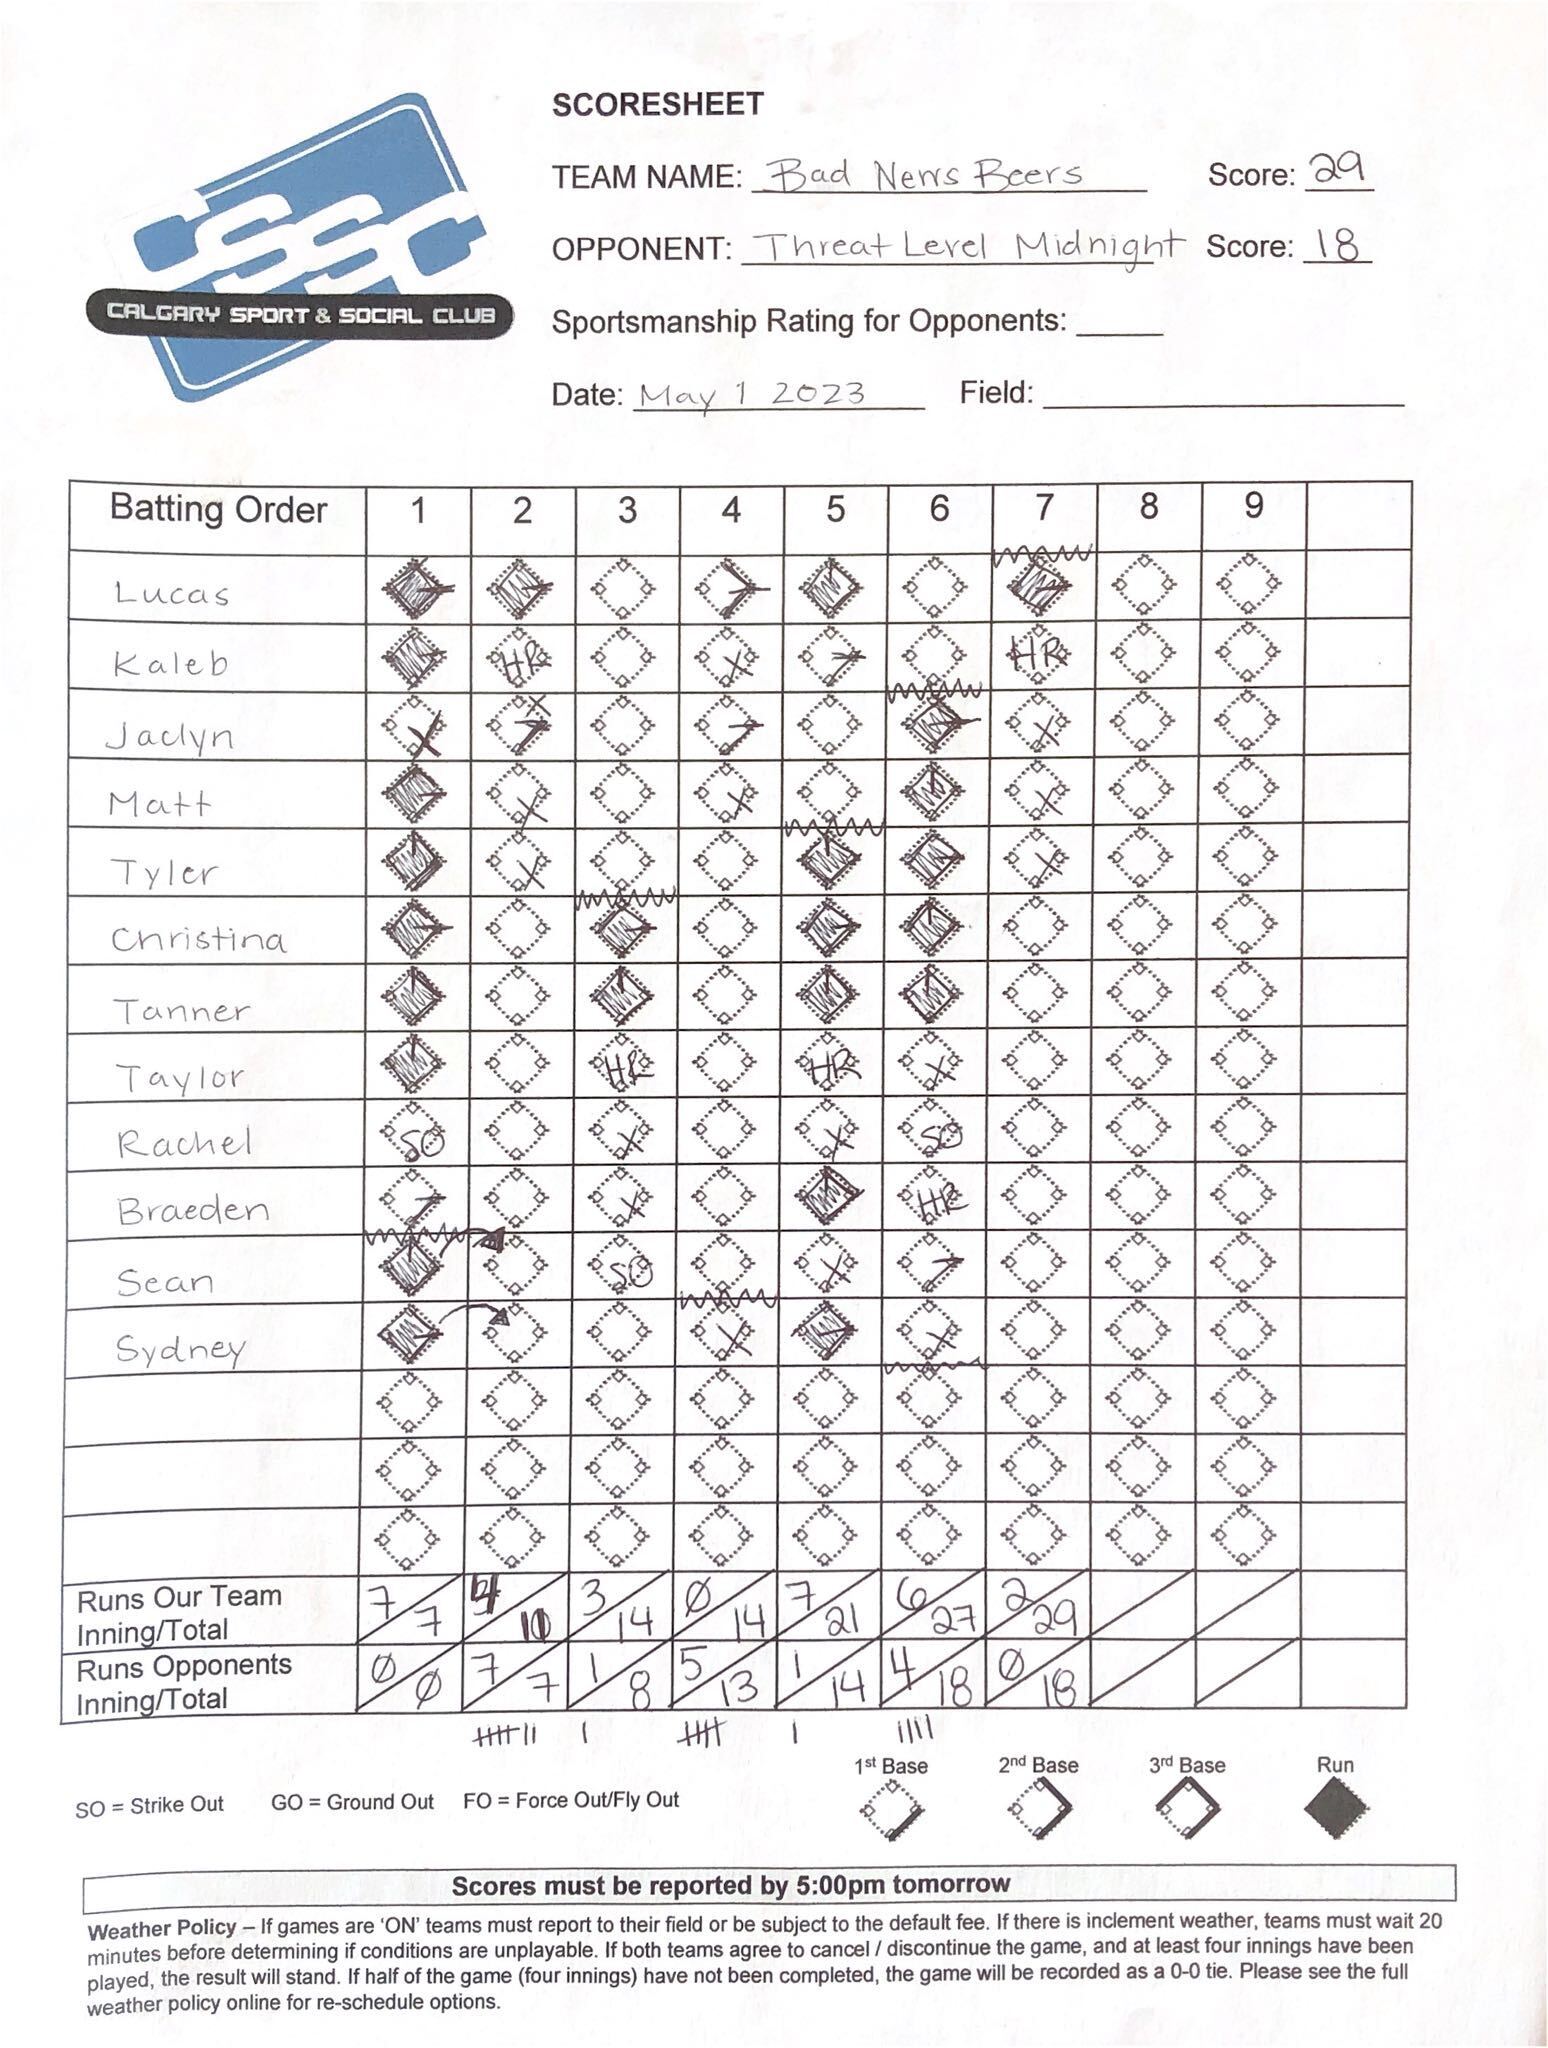 SCORESHEET
TEAM NAME: Bad News Beers Score: 29
OPPONENT: Threat Level Midnight Score: 18
CSSC
CALGARY SPORT & SOCIAL CLUB
Sportsmanship Rating for Opponents:
Date: May 1 2023 Field:
Batting Order 1 2 3 4 5 6 7 8 9
Lucas
Kaleb HR X HR
Jaclyn X X X
Matt X X X
Tyler X X
Christina
Tanner
Taylor HR HR X
Rachel SO X X SO
Braeden X HR
Sean SO X
Sydney X X
Runs Our Team 7 4 3 Ø 7 6 2
Inning/Total 7 14 14 21 27 29
Runs Opponents Ø 7 1 5 1 4 Ø
Inning/Total Ø 7 8 13 14 18 18
1st Base 2nd Base 3rd Base Run
SO = Strike Out GO = Ground Out FO = Force Out/Fly Out
Scores must be reported by 5:00pm tomorrow
Weather Policy – If games are 'ON' teams must report to their field or be subject to the default fee. If there is inclement weather, teams must wait 20
minutes before determining if conditions are unplayable. If both teams agree to cancel / discontinue the game, and at least four innings have been
played, the result will stand. If half of the game (four innings) have not been completed, the game will be recorded as a 0-0 tie. Please see the full
weather policy online for re-schedule options.